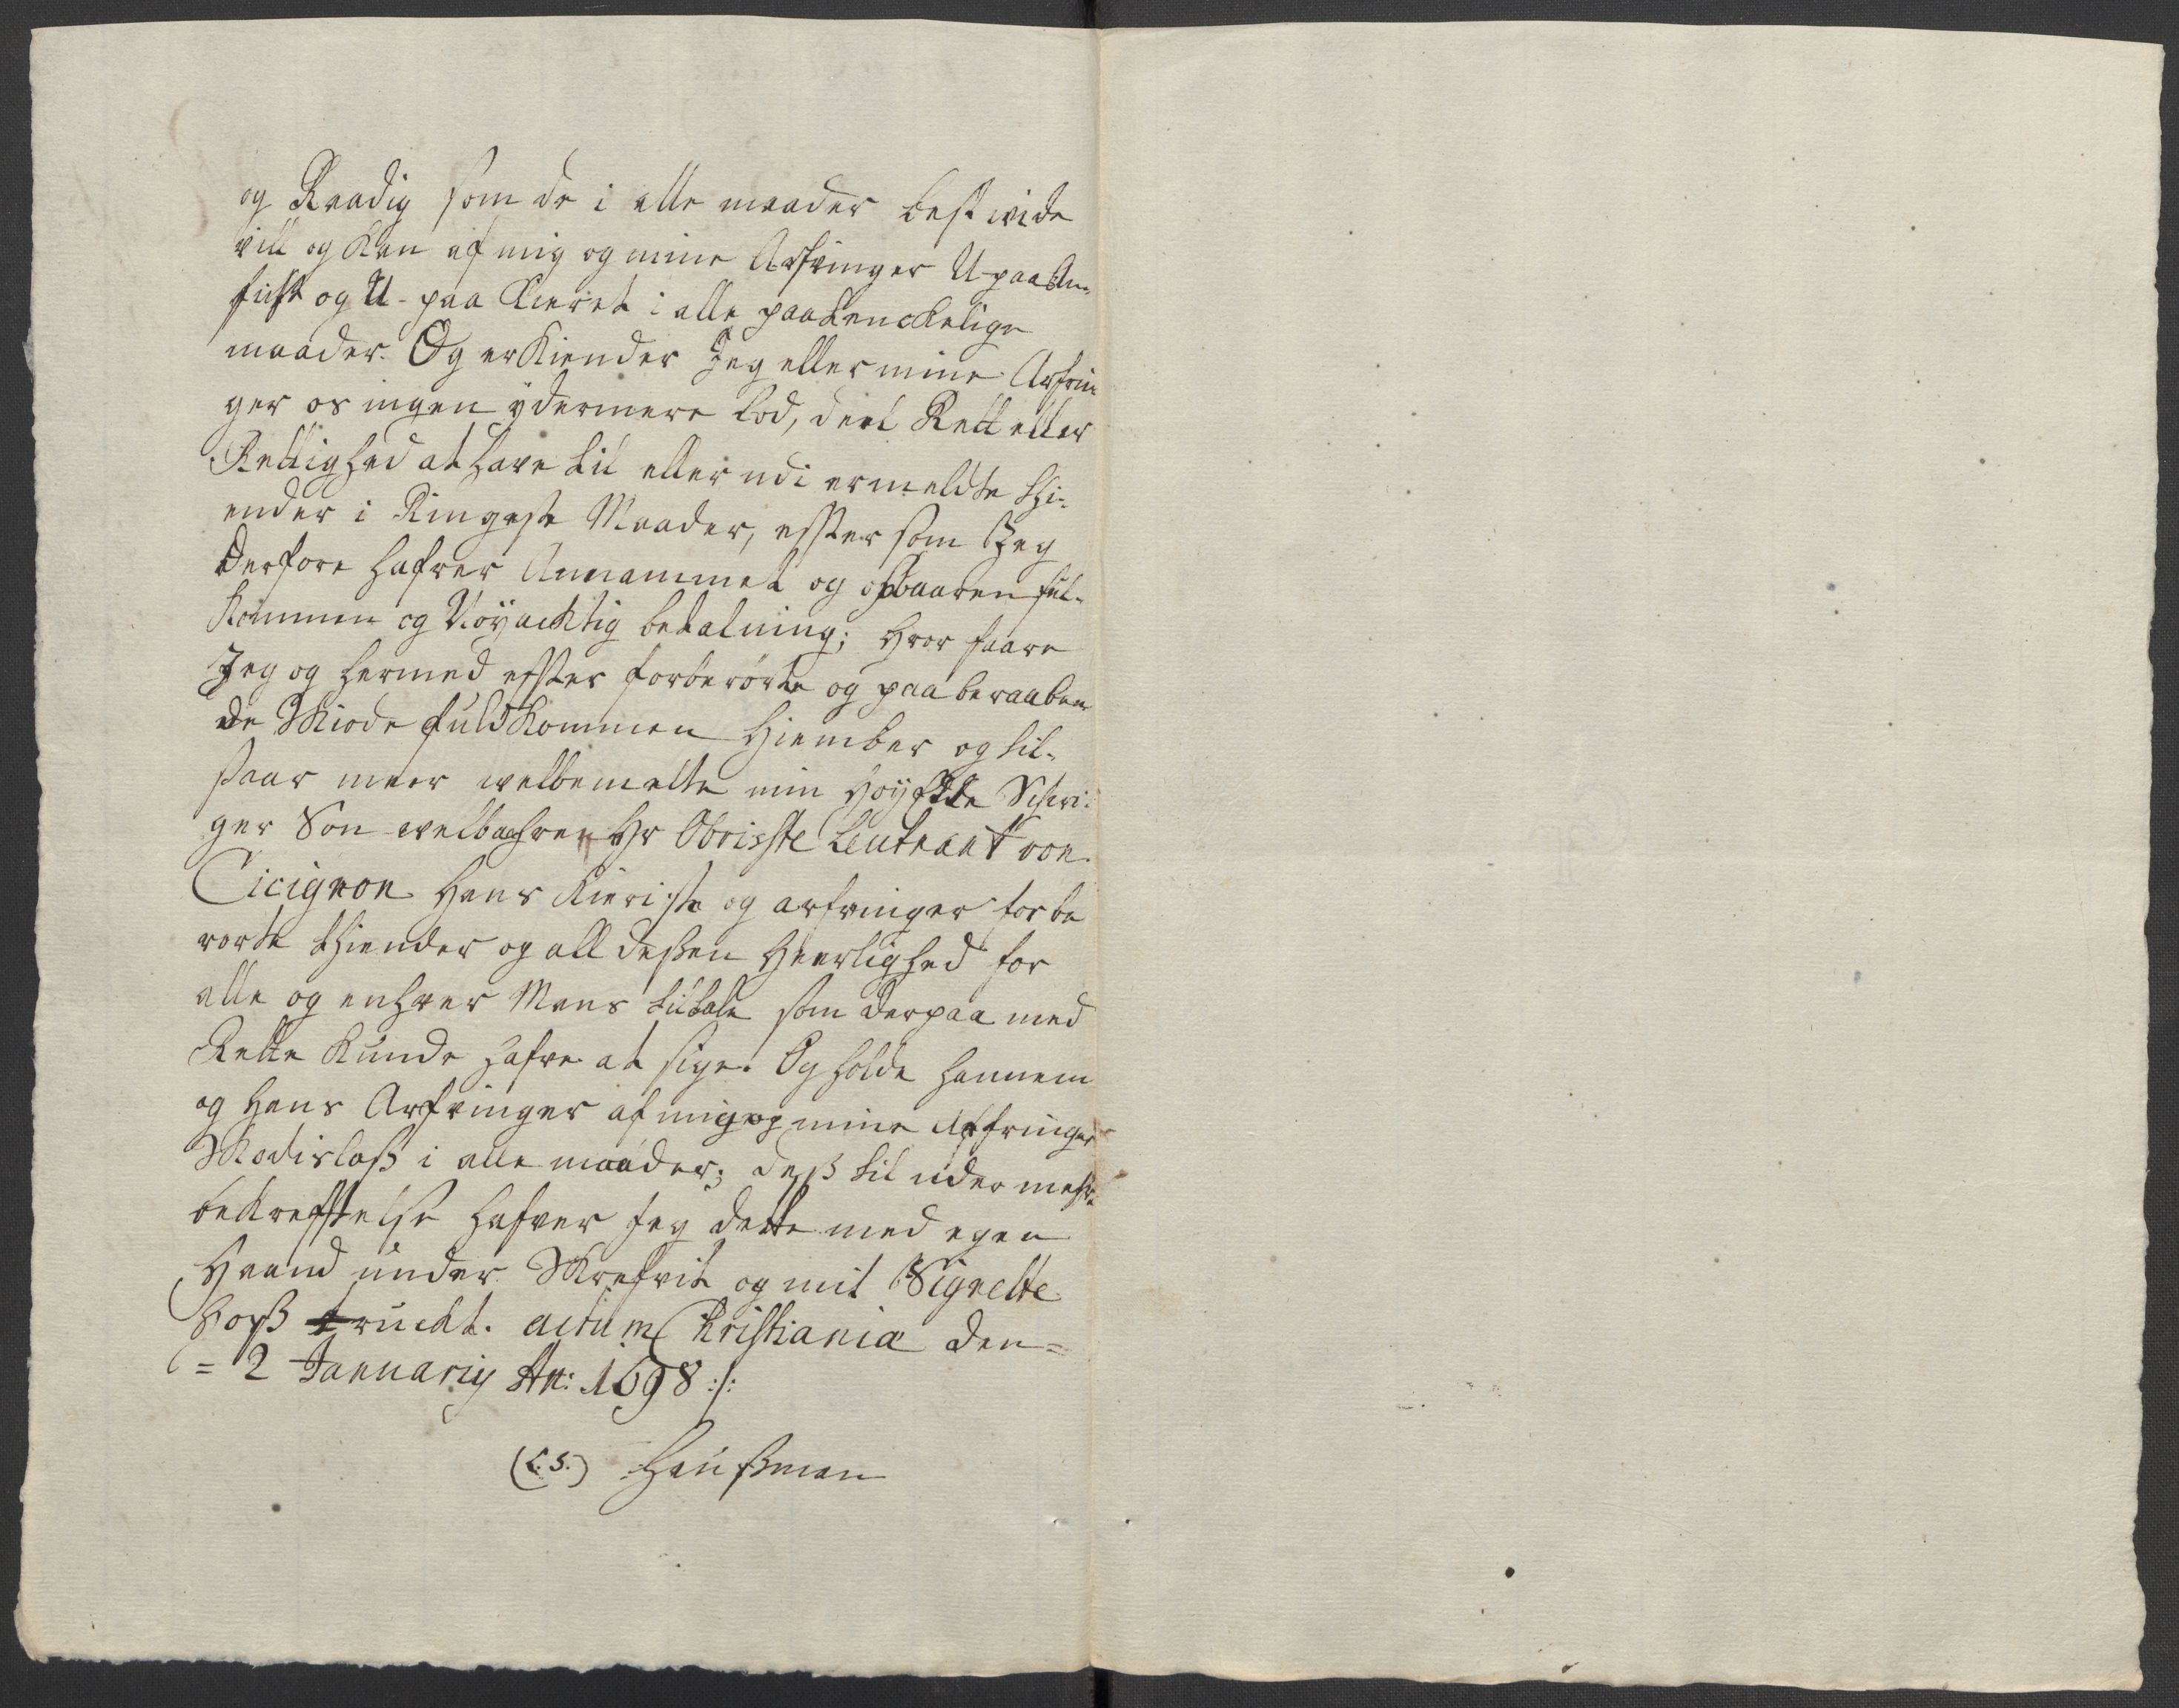 og Raadig som de i alle maader best vide
vill og Kan af mig og mine Arfvinger U-paaAn-
fust og U-paa Kieret i alle paatenckelige
maader. Og erKiender Jeg eller mine Arfvin-
ger os ingen ydermere Lod, deel Rett eller
Rettighed at have til eller udi ermeldte thi-
ender i Ringeste Maader, effter som Jeg
Derfore hafver Annammet og opbaaren ful-
Kommen og Nöyacktig betalning; Hvor faare
Jeg og hermed effter forberörte og paa beraaben-
de Skiöde fuldKommen Hiember og til-
staar meer welbemelte min Höy Schwi-
ger Son welbahren Hr Obriste Leutnant von
Cicignon Hans Kieriste og arfvinger for be
rorte thiender og all dessen Herlighed for
alle og enhver Mans tiltale som derpaa med
Rette Kunde hafve at sige. Og holde hannem
og Hans Arfvinger af mig og mine Arfvinger
Skadislass i alle maader; dess til ider mehre
beKrefftelse hafver Jeg dette med egen
Haand under Skrefvit og mit Signette
hoss truckt. actum Christiania den=
= 2 January An: 1698 :/:
(L.S.) Haussman